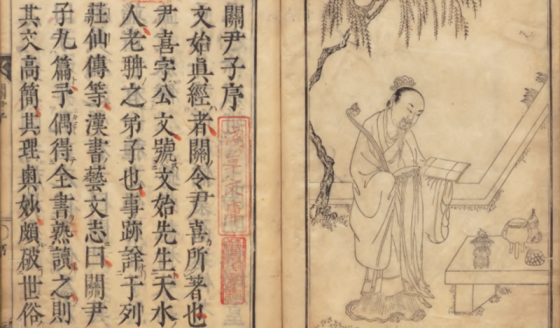 關尹子序
文始眞經者關令尹喜所著也
尹喜字公文號文始先生天水
人老聃之弟子也事跡詮于列
莊仙傳等漢書藝文志曰關尹
子九篇予偶得全書熟讀之則
其文高簡其理奧妙頗破世俗